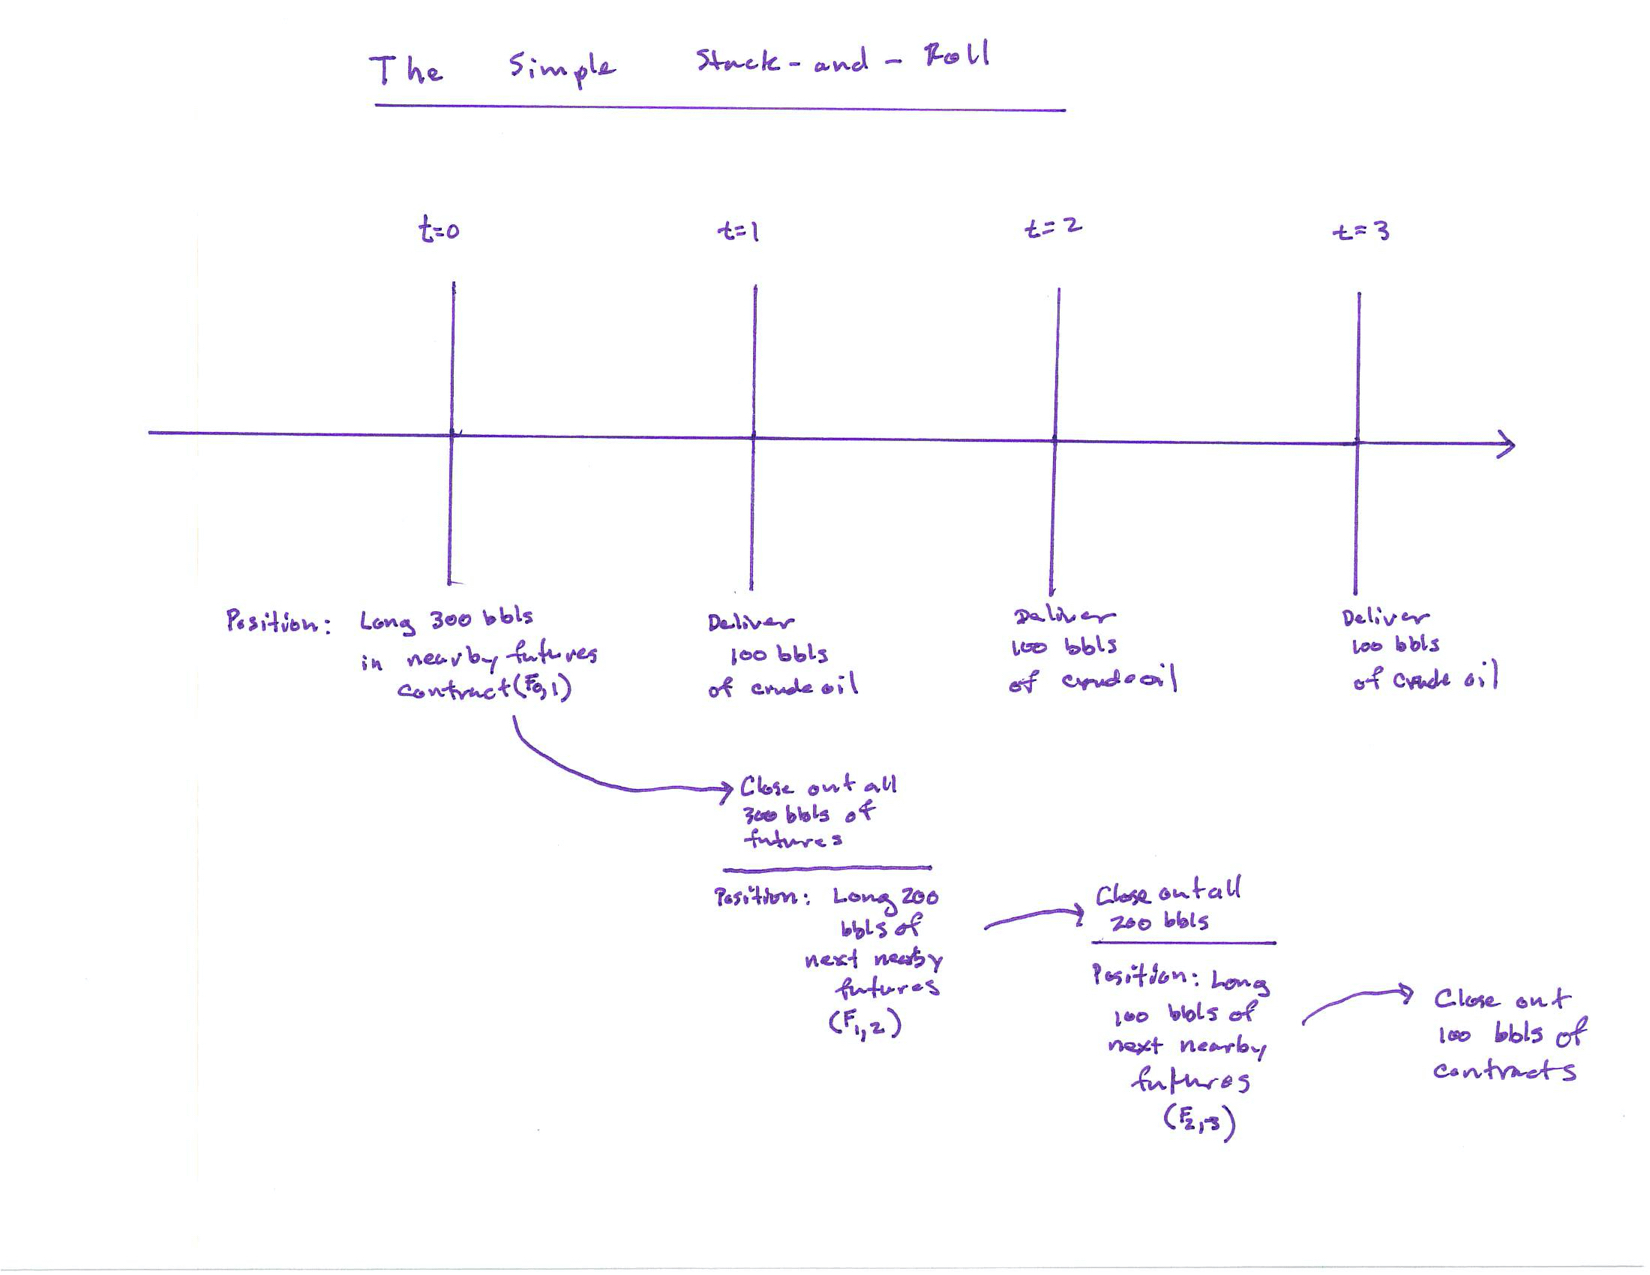 The Simple Stack-and-Roll
t=0 t=1 t=2 t=3
Position: Long 300 bbls
in nearby futures
contract (F0,1)
Deliver
100 bbls
of crude oil
Deliver
100 bbls
of crude oil
Deliver
100 bbls
of crude oil
Close out all
300 bbls of
futures
Position: Long 200
bbls of
next nearby
futures
(F1,2)
Close out all
200 bbls
Position: Long
100 bbls of
next nearby
futures
(F2,3)
Close out
100 bbls of
contracts